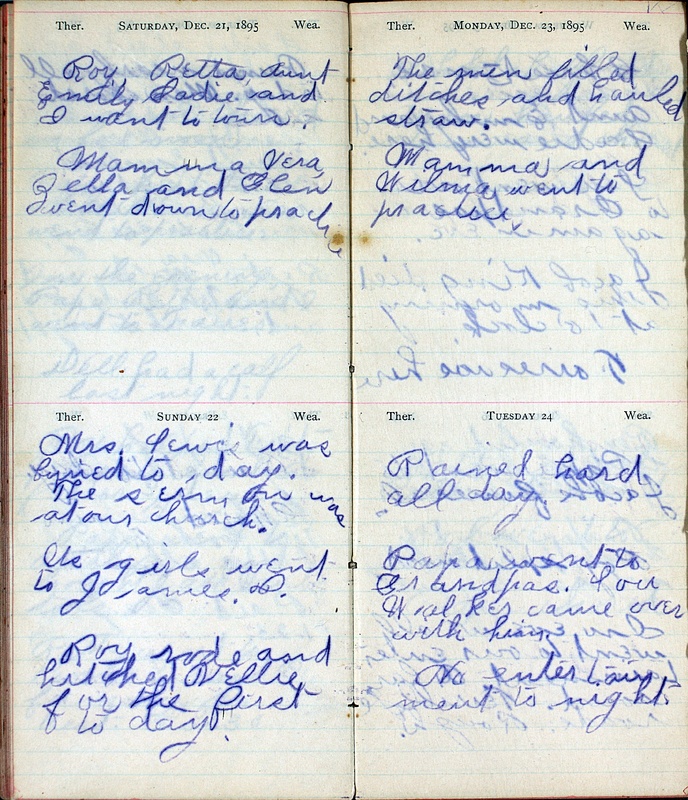 Ther. SATURDAY, DEC. 21, 1895 Wea.
Roy, Retta, Aunt
Emily Sadie and
I want to town.
Mamma Vera
Zella and Glen
went down to practice
SUNDAY 22
Ther. Wea.
Mrs. Lewis was
buried to day.
The sermon was
at our church.
Us girls went
to James. P.
Roy rode and
hitched Nellie
for the first
to day.
Ther. MONDAY, DEC. 23, 1895 Wea.
The men filled
ditches and hauled
straw.
Mamma and
Wilma went to
practice
Ther. TUESDAY 24 Wea.
Rained hard
all day.
Papa went to
Grandpas. Lou
Walker came over
with him.
No entertain
ment to night.